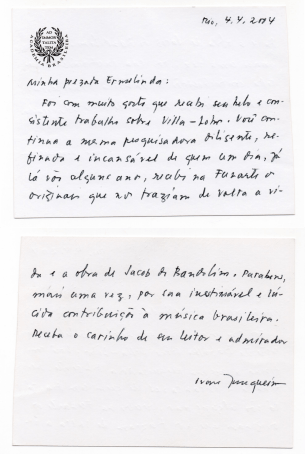 ACADEMIA BRASILEIRA
Rio, 4.4.2004
Minha prezada Ermelinda:
Foi com muito gosto que recebi seu belo e con-
sistente trabalho sobre Villa-Lobos. Você con-
tinua a mesma pesquisadora diligente, re-
finada e incansável de quem um dia, já
lá vão alguns anos, recebi na Funarte o
original que nos traziam de volta a vi-
da e a obra de Jacob do Bandolim. Parabéns,
mais uma vez, por sua inestimável e lú-
cida contribuição à música brasileira.
Receba o carinho de seu leitor e admirador
Ivan Junqueira